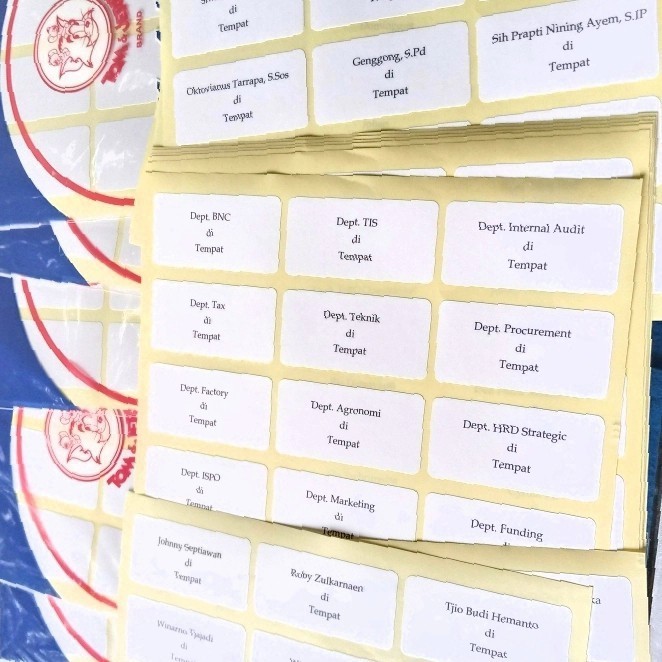 BRAND
Tempat
Oktovianus Tarrapa, S.Sos
di
Tempat
Genggong, S.Pd
di
Tempat
Sih Prapti Nining Ayem, S.IP
di
Tempat
Dept. BNC
di
Tempat
Dept. TIS
di
Tempat
Dept. Internal Audit
di
Tempat
Dept. Tax
di
Tempat
Dept. Teknik
di
Tempat
Dept. Procurement
di
Tempat
Dept. Factory
di
Tempat
Dept. Agronomi
di
Tempat
Dept. HRD Strategic
di
Tempat
Dept. ISPO
di
Tempat
Dept. Marketing
di
Tempat
Dept. Funding
Johnny Septiawan
di
Tempat
Roby Zulkarnaen
di
Tempat
Tjio Budi Hemanto
di
Tempat
Winarno Tjajadi
di